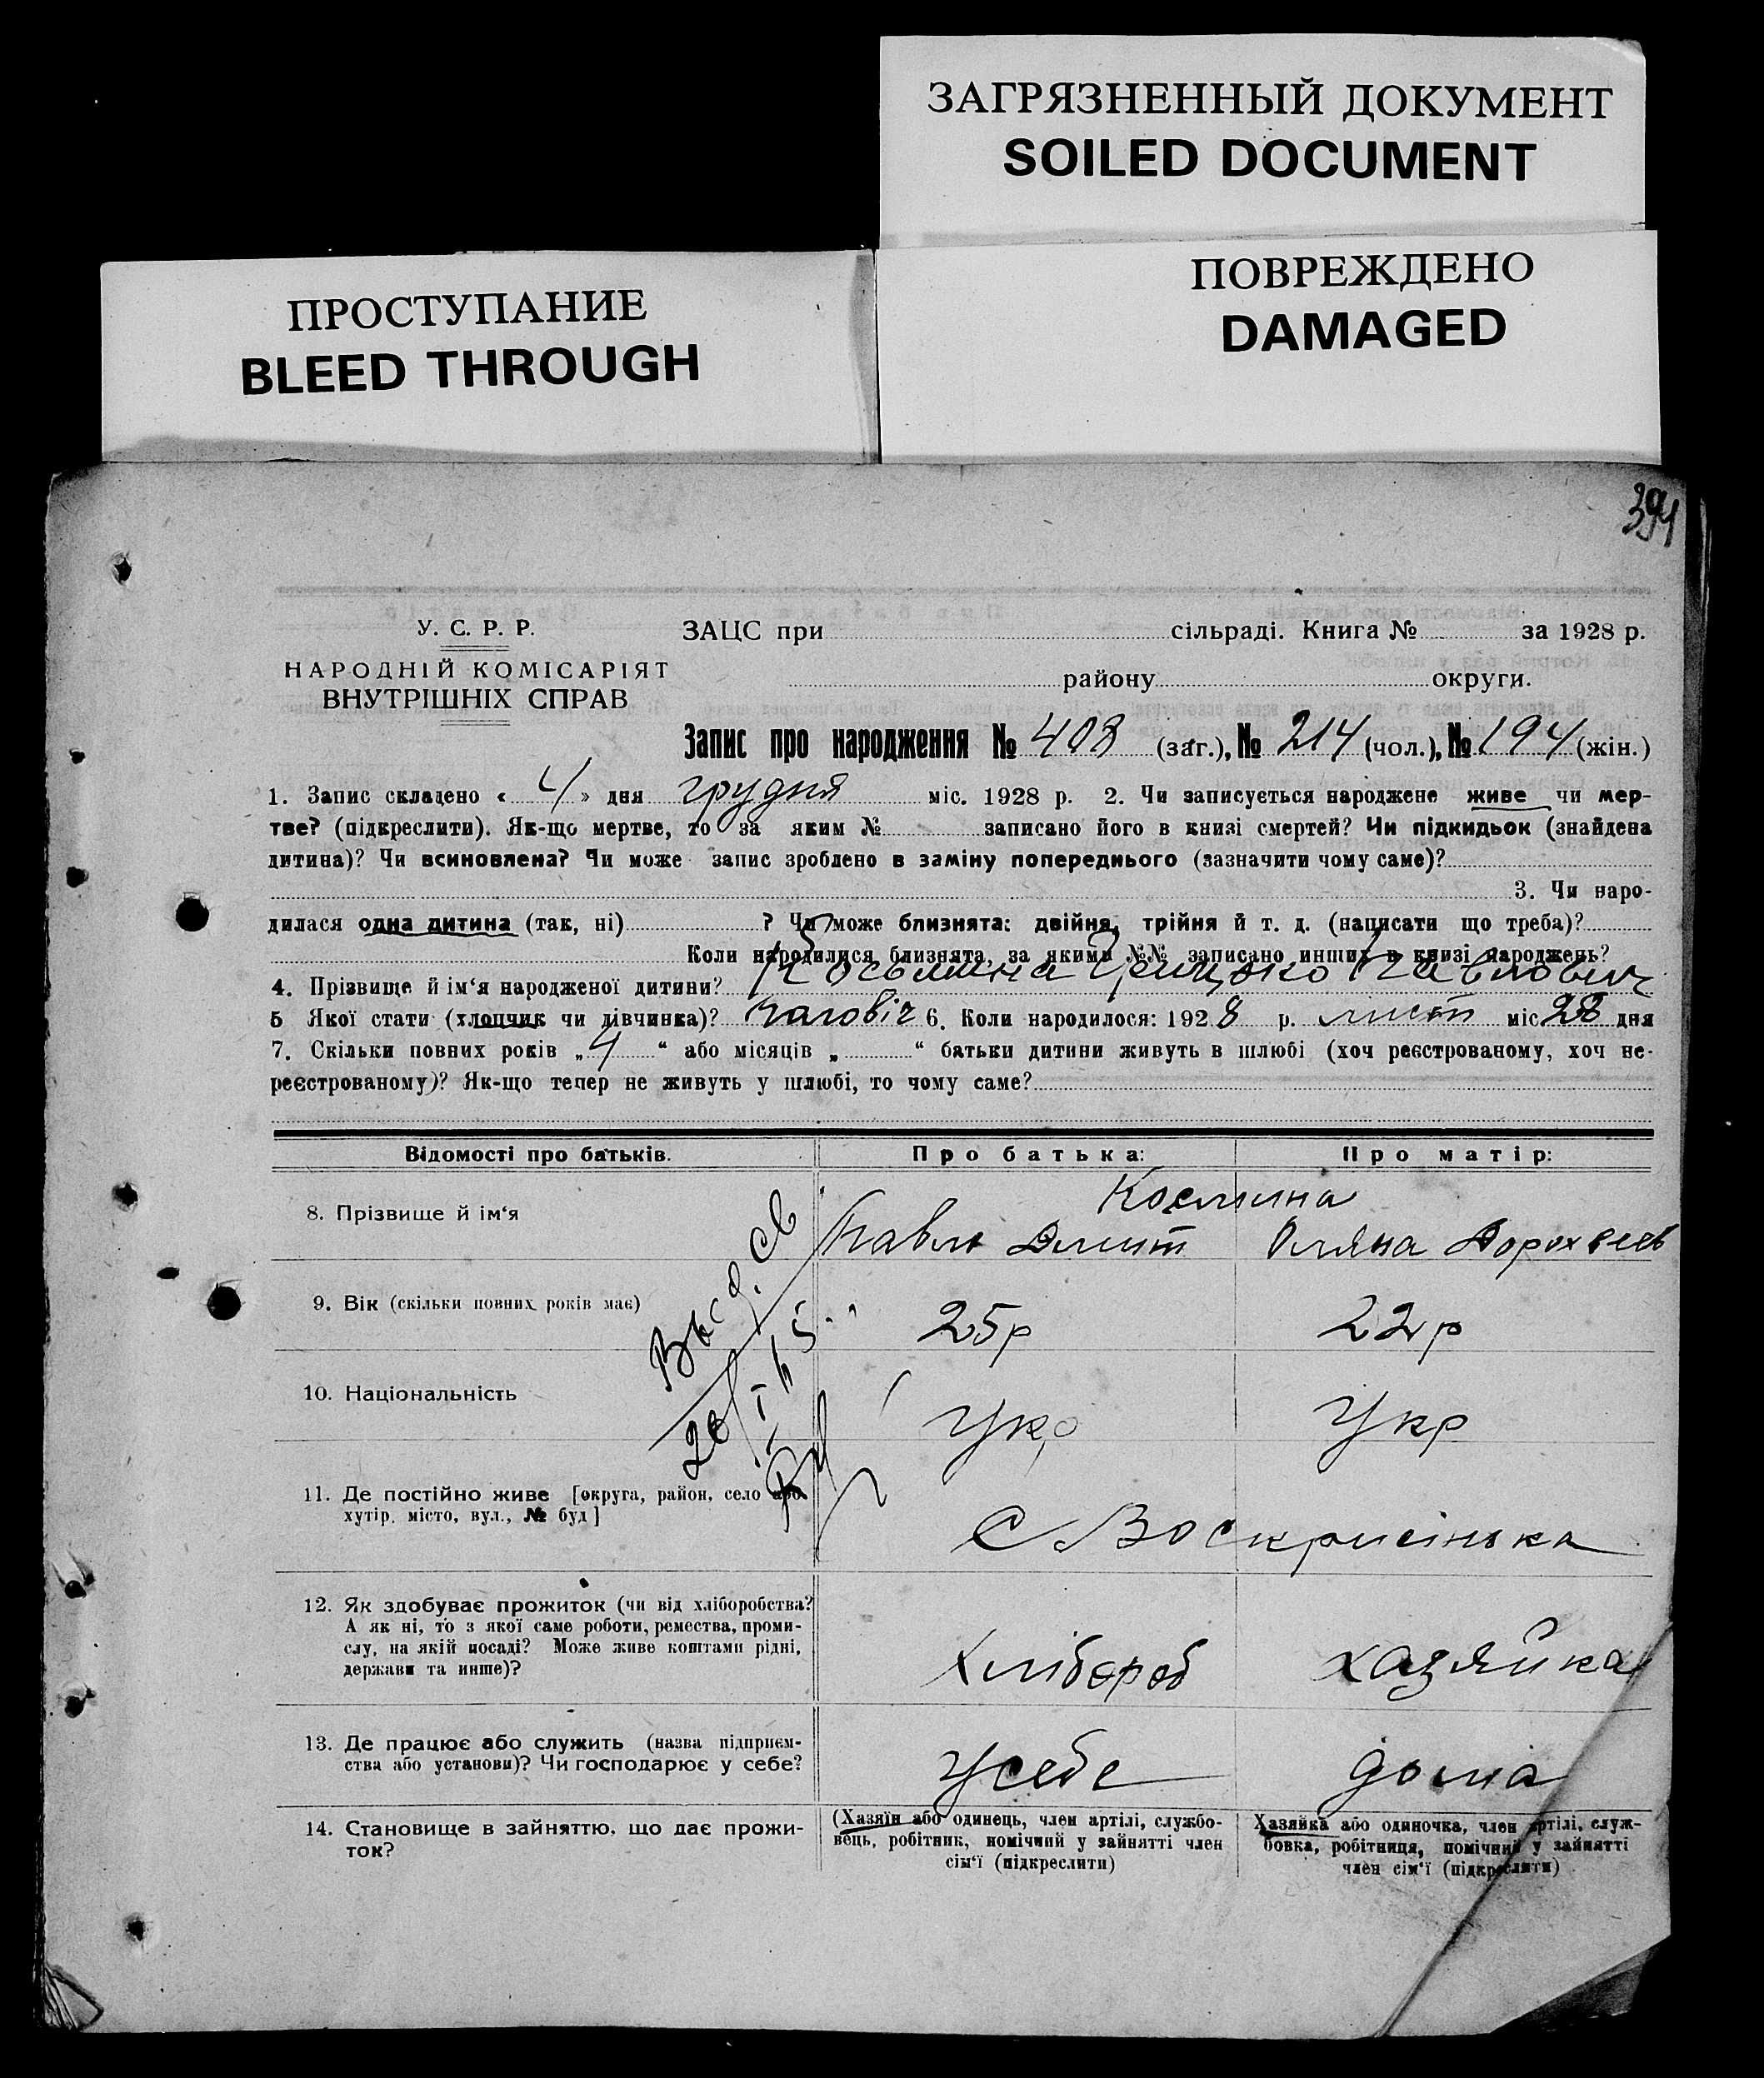 ЗАГРЯЗНЕННЫЙ ДОКУМЕНТ
SOILED DOCUMENT
ПРОСТУПАНИЕ
BLEED THROUGH
ПОВРЕЖДЕНО
DAMAGED
394
У. С. Р. Р.
НАРОДНІЙ КОМІСАРІЯТ
ВНУТРІШНІХ СПРАВ
ЗАЦС при сільраді. Книга № за 1928 р.
району округи.
Запис про народження № 408 (заг.), № 214 (чол.), № 194 (жін.)
1. Запис складено « 4 » дня грудня міс. 1928 р. 2. Чи записується народжене живе чи мер-
тве? (підкреслити). Як-що мертве, то за яким № записано його в книзі смертей? Чи підкидьок (знайдена
дитина)? Чи всиновлена? Чи може запис зроблено в заміну попереднього (зазначити чому саме)?
3. Чи наро-
дилася одна дитина (так, ні) ? Чи може близнята: двійня, трійня й т. д. (написати що треба)?
Коли народилися близнята, за якими №№ записано инших в книзі народжень?
4. Прізвище й ім‘я народженої дитини? Косьмина Грицько Павлович
5 Якої стати (хлопчик чи дівчинка)? чаловіч 6. Коли народилося: 1928 р. лист міс 28 дня
7. Скільки повних років „ 4 “ або місяців „ “ батьки дитини живуть в шлюбі (хоч реєстрованому, хоч не-
реєстрованому)? Як-що тепер не живуть у шлюбі, то чому саме?
Відомості про батьків. Про батька: Про матір:
8. Прізвище й ім‘я
Космина
Павло Дмит Оляна Дорохвеев
9. Вік (скільки повних років має) 25р 22р
10. Національність Укр Укр
11. Де постійно живе [округа, район, село або
хутір, місто, вул., № буд]
С Воскрисінька
12. Як здобуває прожиток (чи від хліборобства?
А як ні, то з якої саме роботи, ремества, проми-
слу, на якій посаді? Може живе коштами рідні,
держави та инше)?
Хлібороб хазяйка
13. Де працює або служить (назва підприєм-
ства або установи)? Чи господарює у себе?
усебе дома
14. Становище в зайняттю, що дає прожи-
ток?
(Хазяїн або одинець, член артілі, службо-
вець, робітник, помічний у зайнятті член
сім‘ї (підкреслити)
Хазяйка або одиночка, член артілі, служ-
бовка, робітниця, помічний у зайнятті
член сім‘ї (підкреслити)